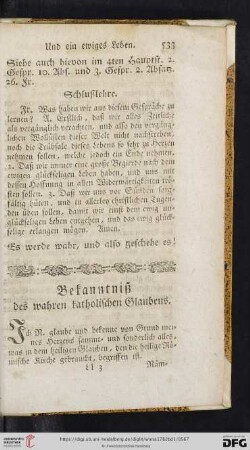 Und ein ewiges Leben. 533
Siehe auch hievon im 4ten Hauptst. 2.
Gespr. 10. Abs. und 3. Gespr. 2. Absatz.
26. Fr.
Schlußlehre.
Fr. Was haben wir aus diesem Gespräche zu
lernen? A. Erstlich, daß wir alles Zeitliche
als vergänglich verachten, und also den vergäng-
lichen Wollüsten dieser Welt nicht nachstreben,
noch die Trübsale dieses Lebens so sehr zu Herzen
nehmen sollen, welche jedoch ein Ende nehmen.
2. Daß wir immer eine große Begierde nach dem
ewigen glückseligen Leben haben, und uns mit
dessen Hoffnung in allen Widerwärtigkeiten trö-
sten sollen. 3. Daß wir uns vor Sünden sorg-
fältig hüten, und in allerley christlichen Tugen-
den üben sollen, damit wir einst dem ewig un-
glückseligen Leben entgehen, und das ewig glück-
selige erlangen mögen. Amen.
Es werde wahr, und also geschehe es!
Bekanntniß
des wahren katholischen Glaubens.
Ich N. glaube und bekenne von Grund mei-
nes Herzens sammt- und sonderlich alles,
was in dem heiligen Glauben, den die heilige Rö-
mische Kirche gebraucht, begriffen ist.
Ll 3 Näm-
http://digi.ub.uni-heidelberg.de/diglit/weiss1782bd1/0567
© Universitätsbibliothek Heidelberg
gefördert durch die
DFG